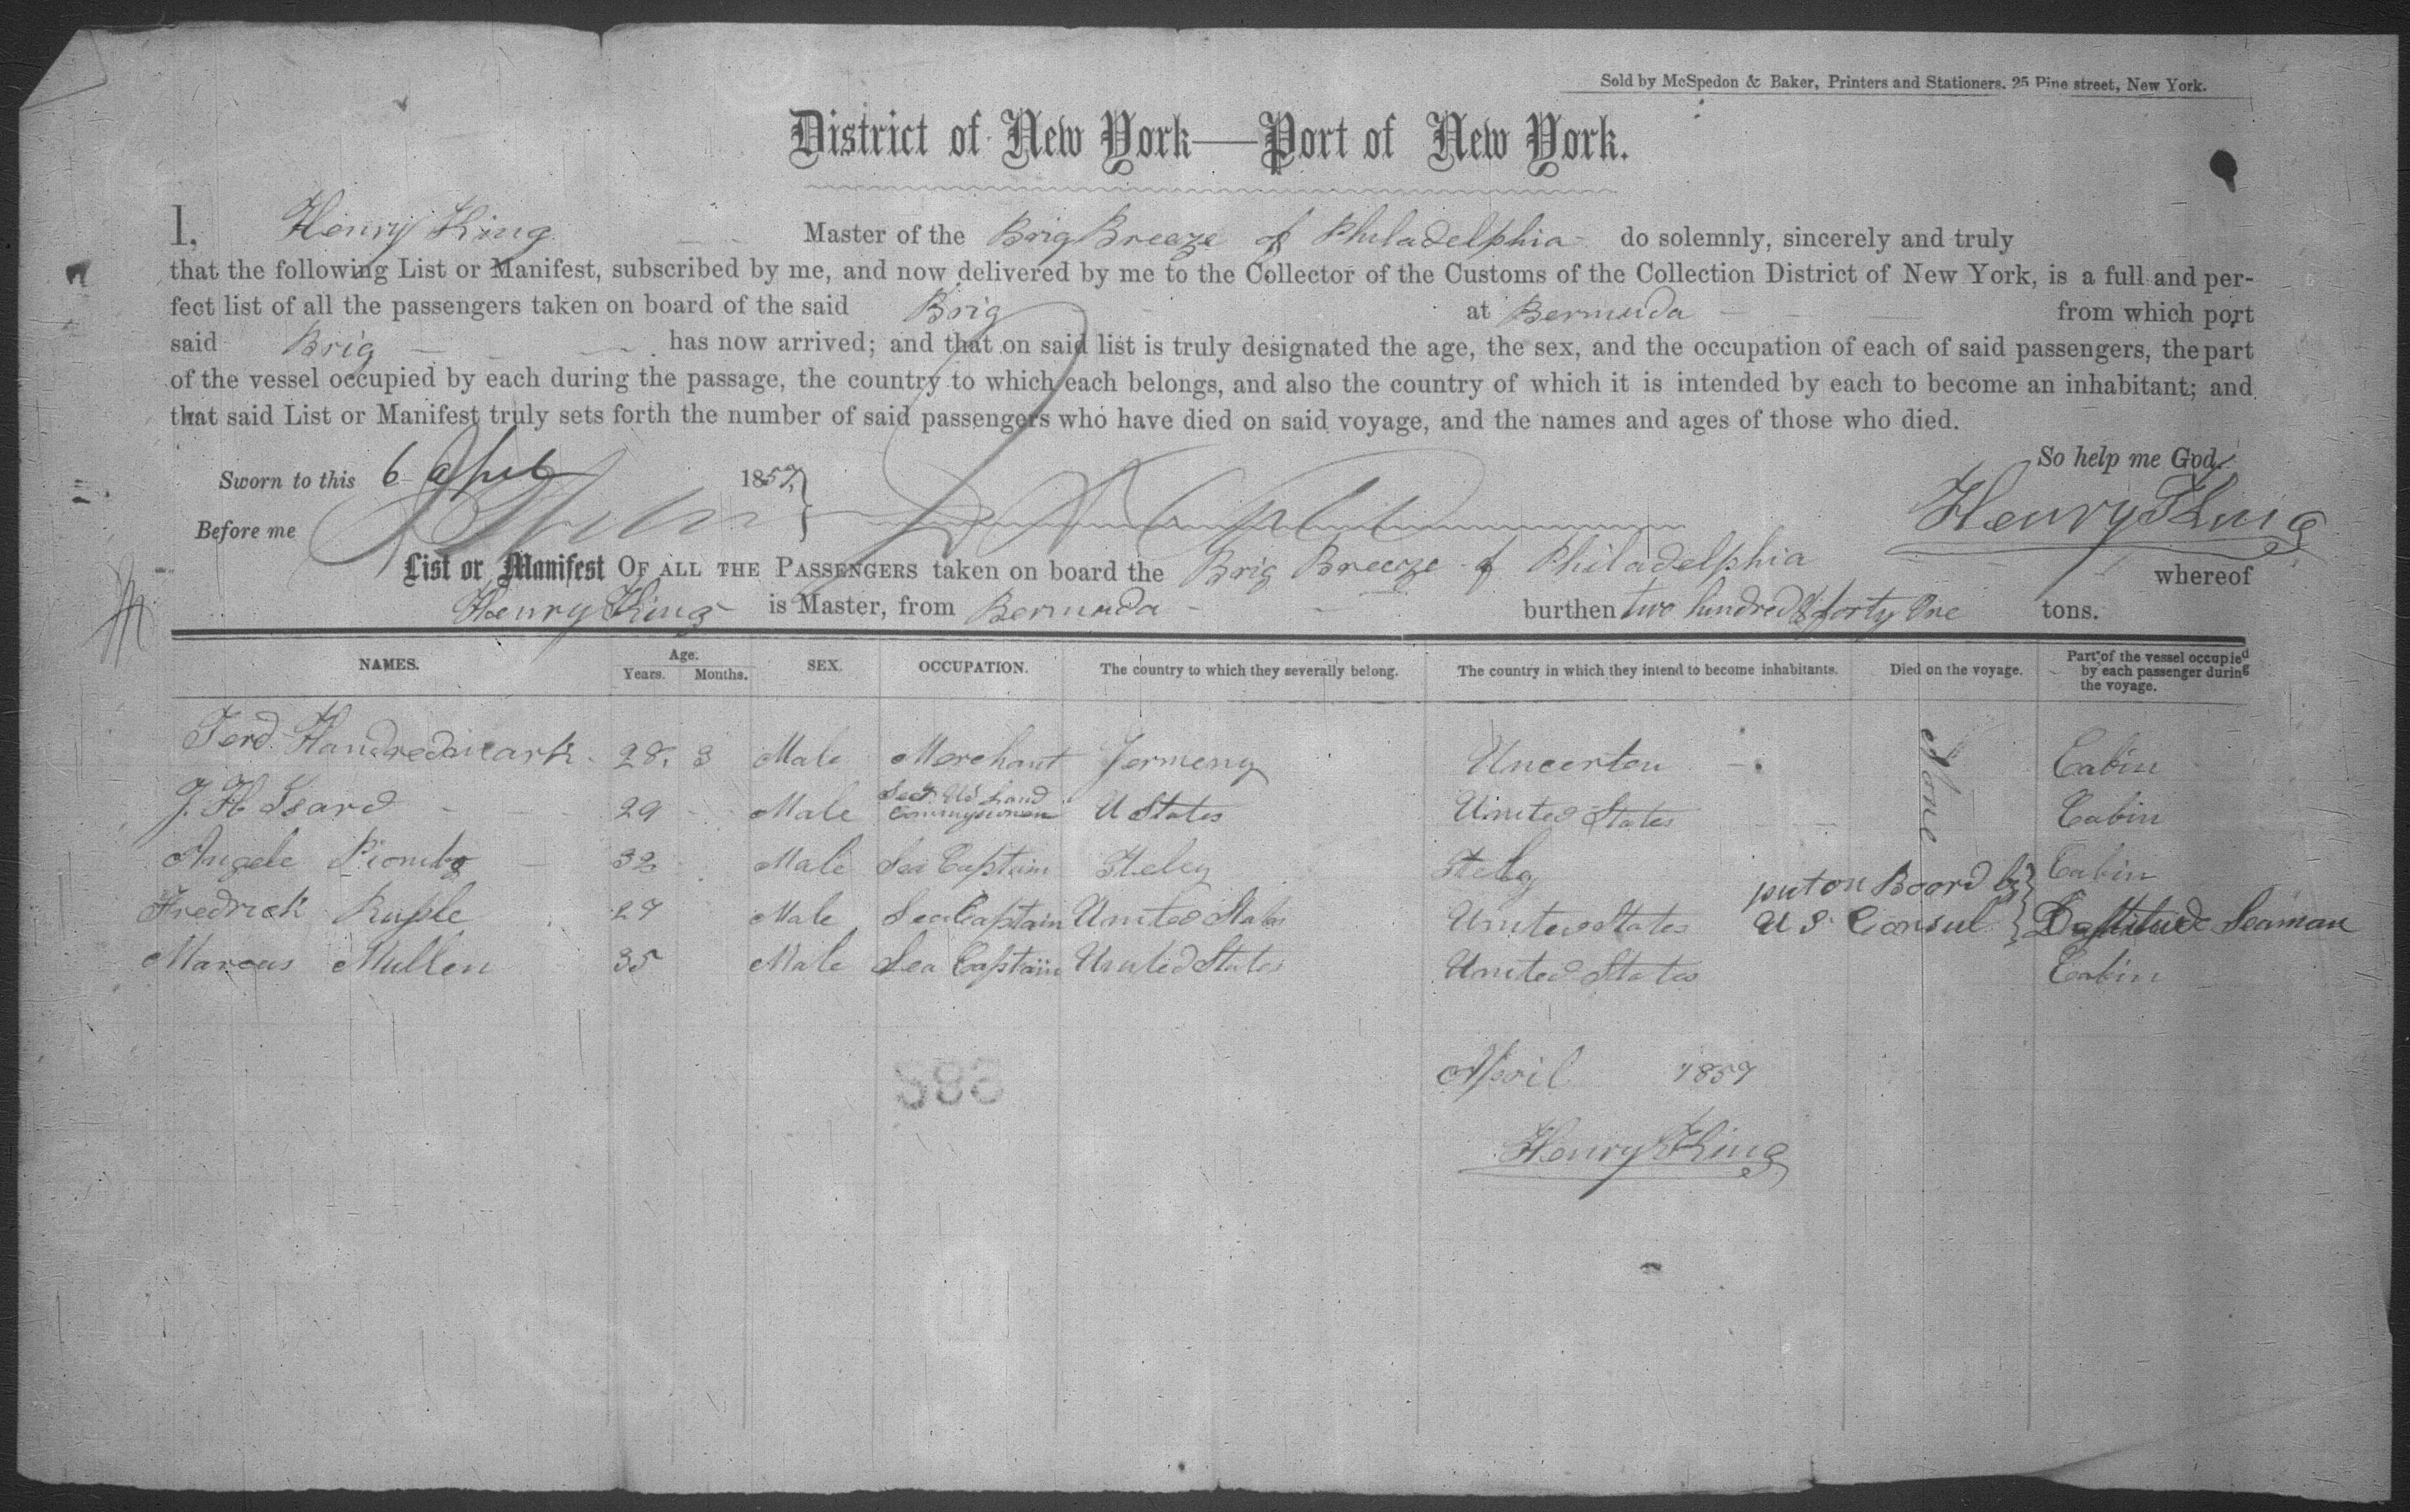 Sold by McSpedon & Baker, Printers and Stationers. 25 Pine street, New York.
District of New York—Port of New York.
I, Henry King Master of the Brig Breeze of Philadelphia do solemnly, sincerely and truly
that the following List or Manifest, subscribed by me, and now delivered by me to the Collector of the Customs of the Collection District of New York, is a full and per-
fect list of all the passengers taken on board of the said Brig at Bermuda from which port
said Brig has now arrived; and that on said list is truly designated the age, the sex, and the occupation of each of said passengers, the part
of the vessel occupied by each during the passage, the country to which each belongs, and also the country of which it is intended by each to become an inhabitant; and
that said List or Manifest truly sets forth the number of said passengers who have died on said voyage, and the names and ages of those who died.
So help me God.
Sworn to this 6 April 1857
Henry King
Before me
List or Manifest OF ALL THE PASSENGERS taken on board the Brig Breeze of Philadelphia whereof
Henry King is Master, from Bermuda burthen two hundred & forty One tons.
NAMES. Age. Years. Months. SEX. OCCUPATION. The country to which they severally belong. The country in which they intend to become inhabitants. Died on the voyage. Part of the vessel occupied by each passenger during the voyage.
Ferd. Handredmark 28. 3 Male Merchant Jermeny Uncerten None Cabin
J. H. Isard 29 Male Sect. US Land Commissioner U States United States Cabin
Angele Piombo 32 Male Sea Captain Iteley Itely Cabin
Fredrick Ruple 27 Male Sea Captain United States United States put on Board by U S Consul Destitute Seaman
Marcus Mullen 35 Male Sea Captain United States United States Cabin
April 1857
Henry King